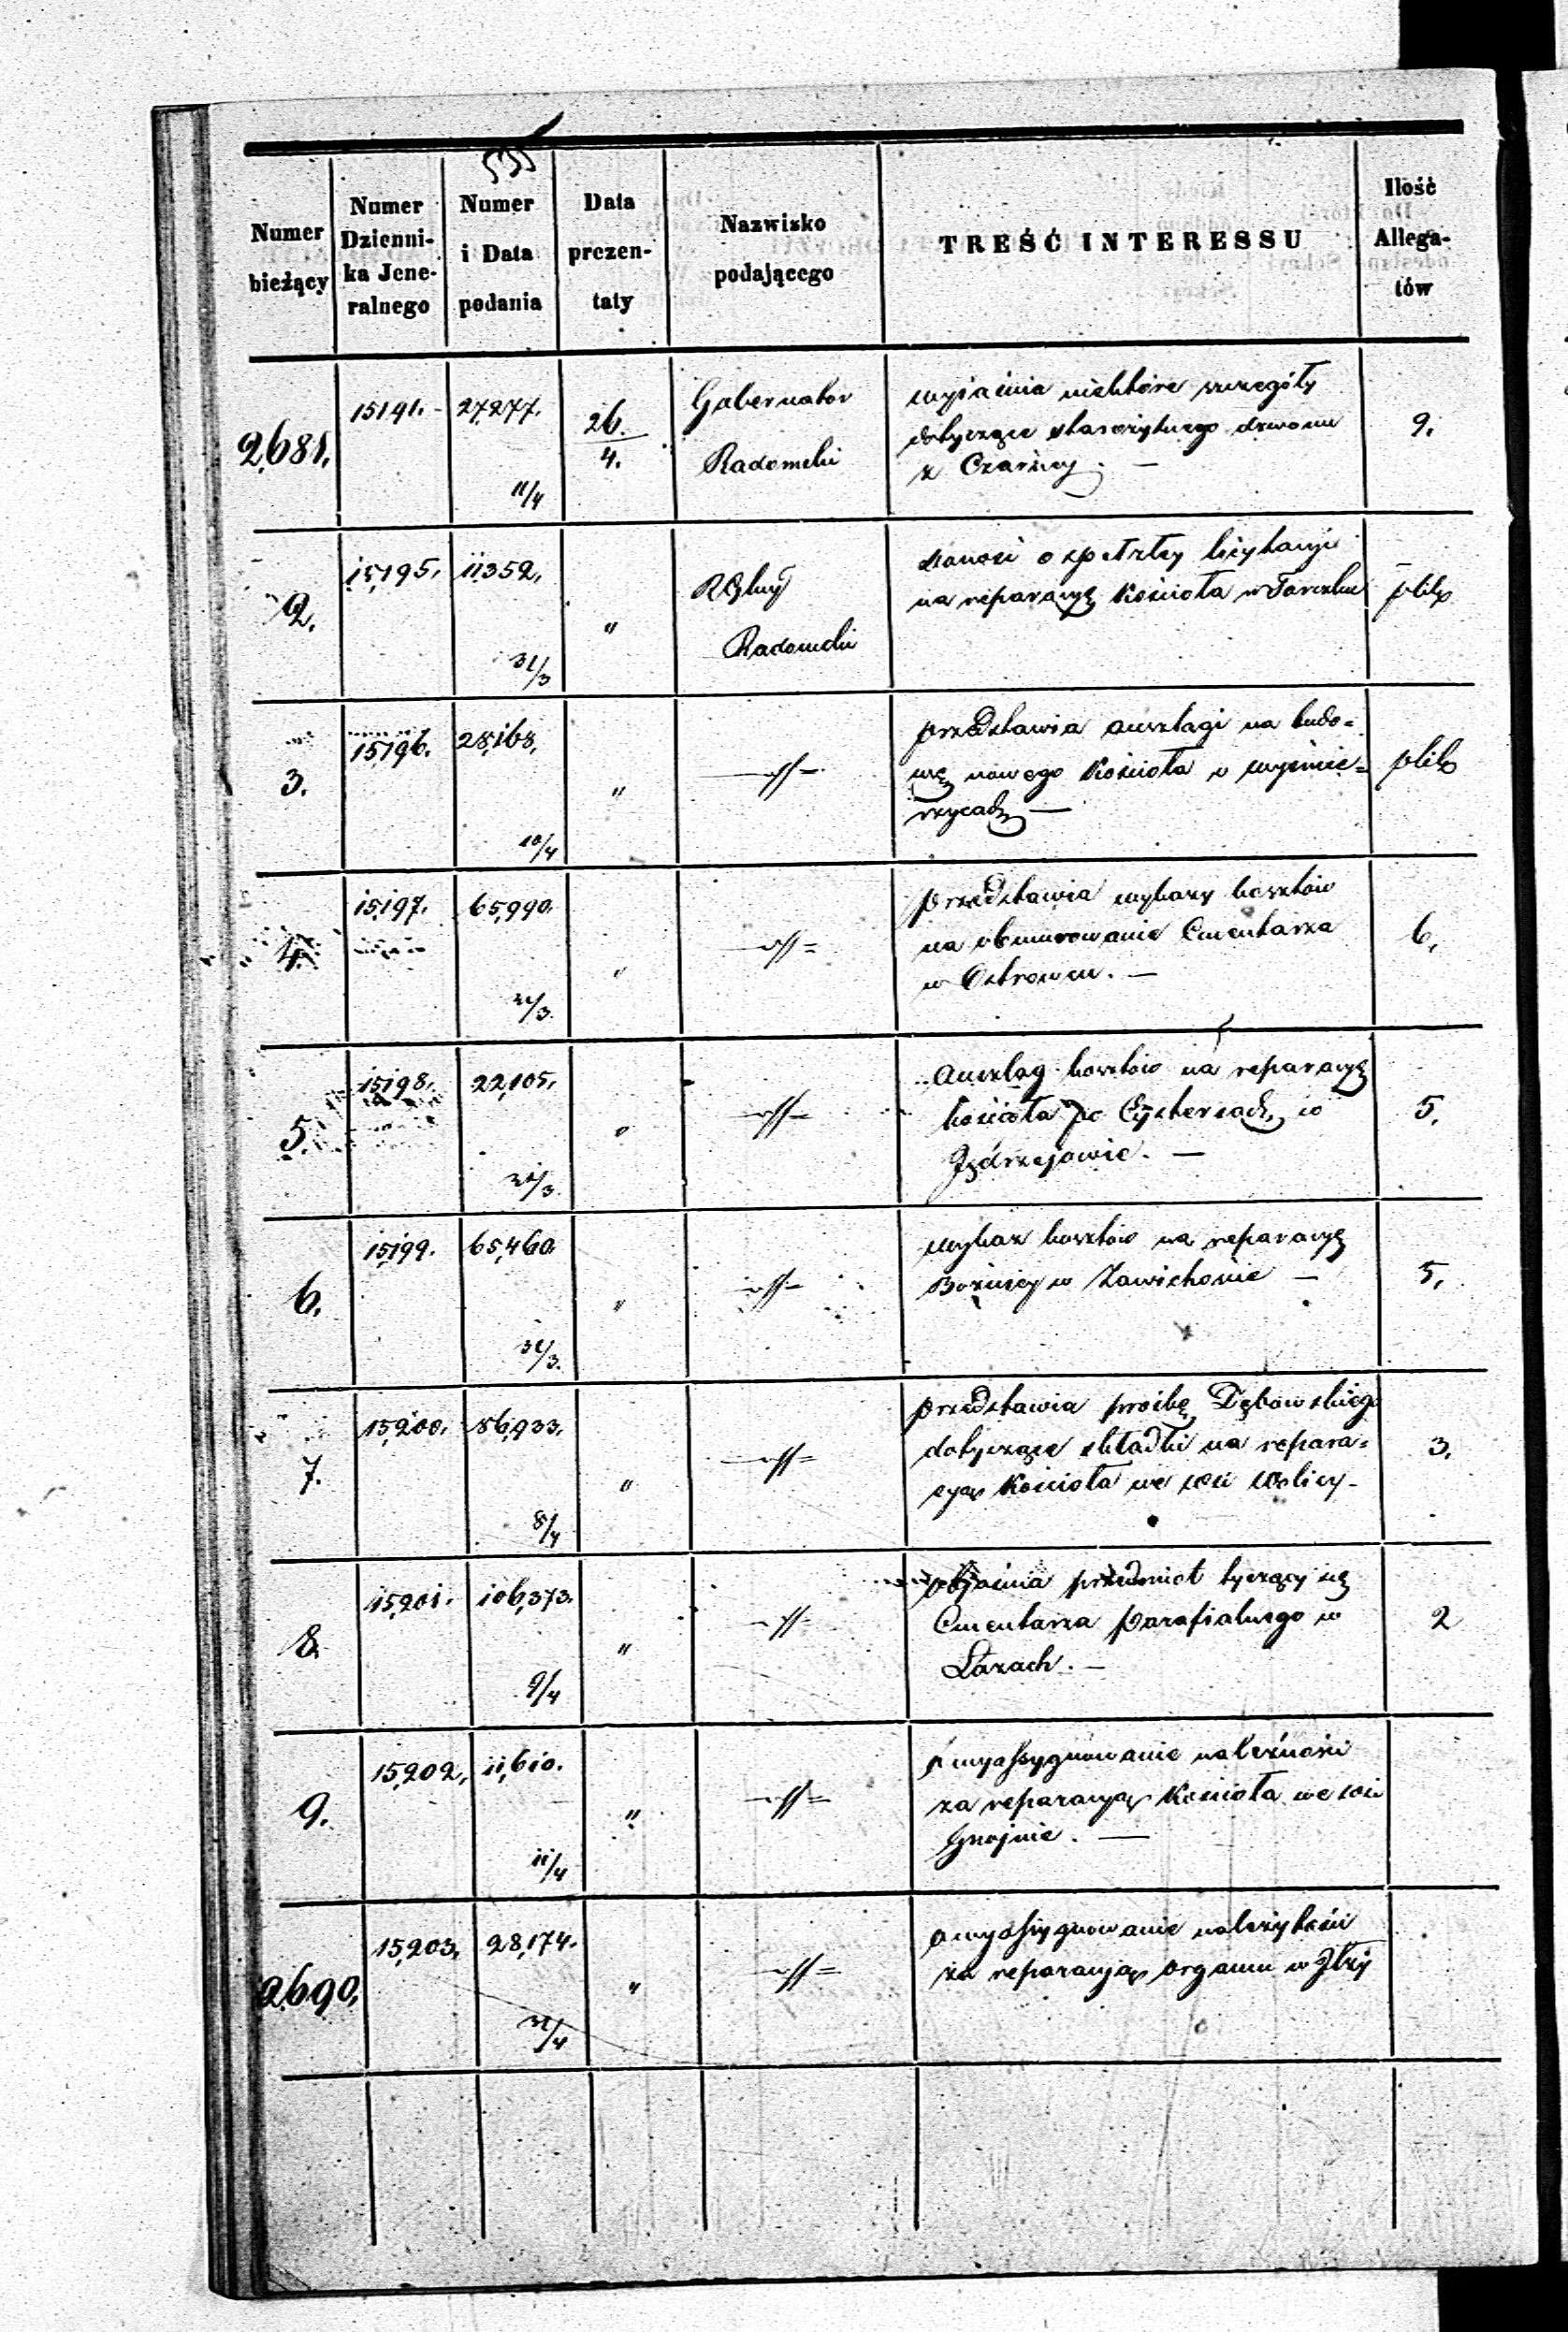 535
Numer bieżący
Numer Dzienni-
ka Jene-
ralnego
Numer i Data podania
Data prezen-
taty
Nazwisko podającego
TREŚĆ INTERESSU
Ilość Allega-
tów
2681.
15191.
27277.
11/4
26.
4.
Gubernator
Radomski
wyjaśnia niektóre szczegóły
dotyczące starożytnego dzwonu
z Czarncy. —
9.
2.
15195.
11352.
31/3
"
Rząd Gubny
Radomski
donosi o spełzłey licytacyi
na reparacyę Kościoła w Tarczku
plik
3.
15196.
28,168.
10/4
"
—//—
przedstawia anszlagi na budo=
wę nowego Kościoła w Wyśmie=
rzycach —
plik
4.
15197.
65,990.
31/3.
"
—//=
przedstawia wykazy kosztów
na obmurowanie Cmentarza
w Ostrowcu. —
6.
5.
15198.
22,105.
31/3.
"
—//—
Anszlag kosztów na reparacyę
kościoła po Cystersach w
Jędrzejowie. —
5.
6.
15199.
65,460.
31/3.
"
—//—
wykaz kosztów na reparacyę
Bożnicy w Zawichoście —
5.
7.
15,200.
86,933.
8/4
"
—//=
przedstawia prośbę Dębowskiego
dotyczące składki na repara=
cyą Kościoła we wsi Wolicy -
3.
8.
15,201.
106,373.
9/4
"
—//—
objaśnia przedmiot tyczący się
Cmentarza parafialnego w
Łazach. —
2
9.
15,202.
11,610.
11/4
"
—//=
o wyassygnowanie należności
za reparacyą Kościoła we wsi
Gnojnie. —
2690.
15,203.
28,174.
"
—//=
o wyassygnowanie należytości
za reparacyą organu w Iłży